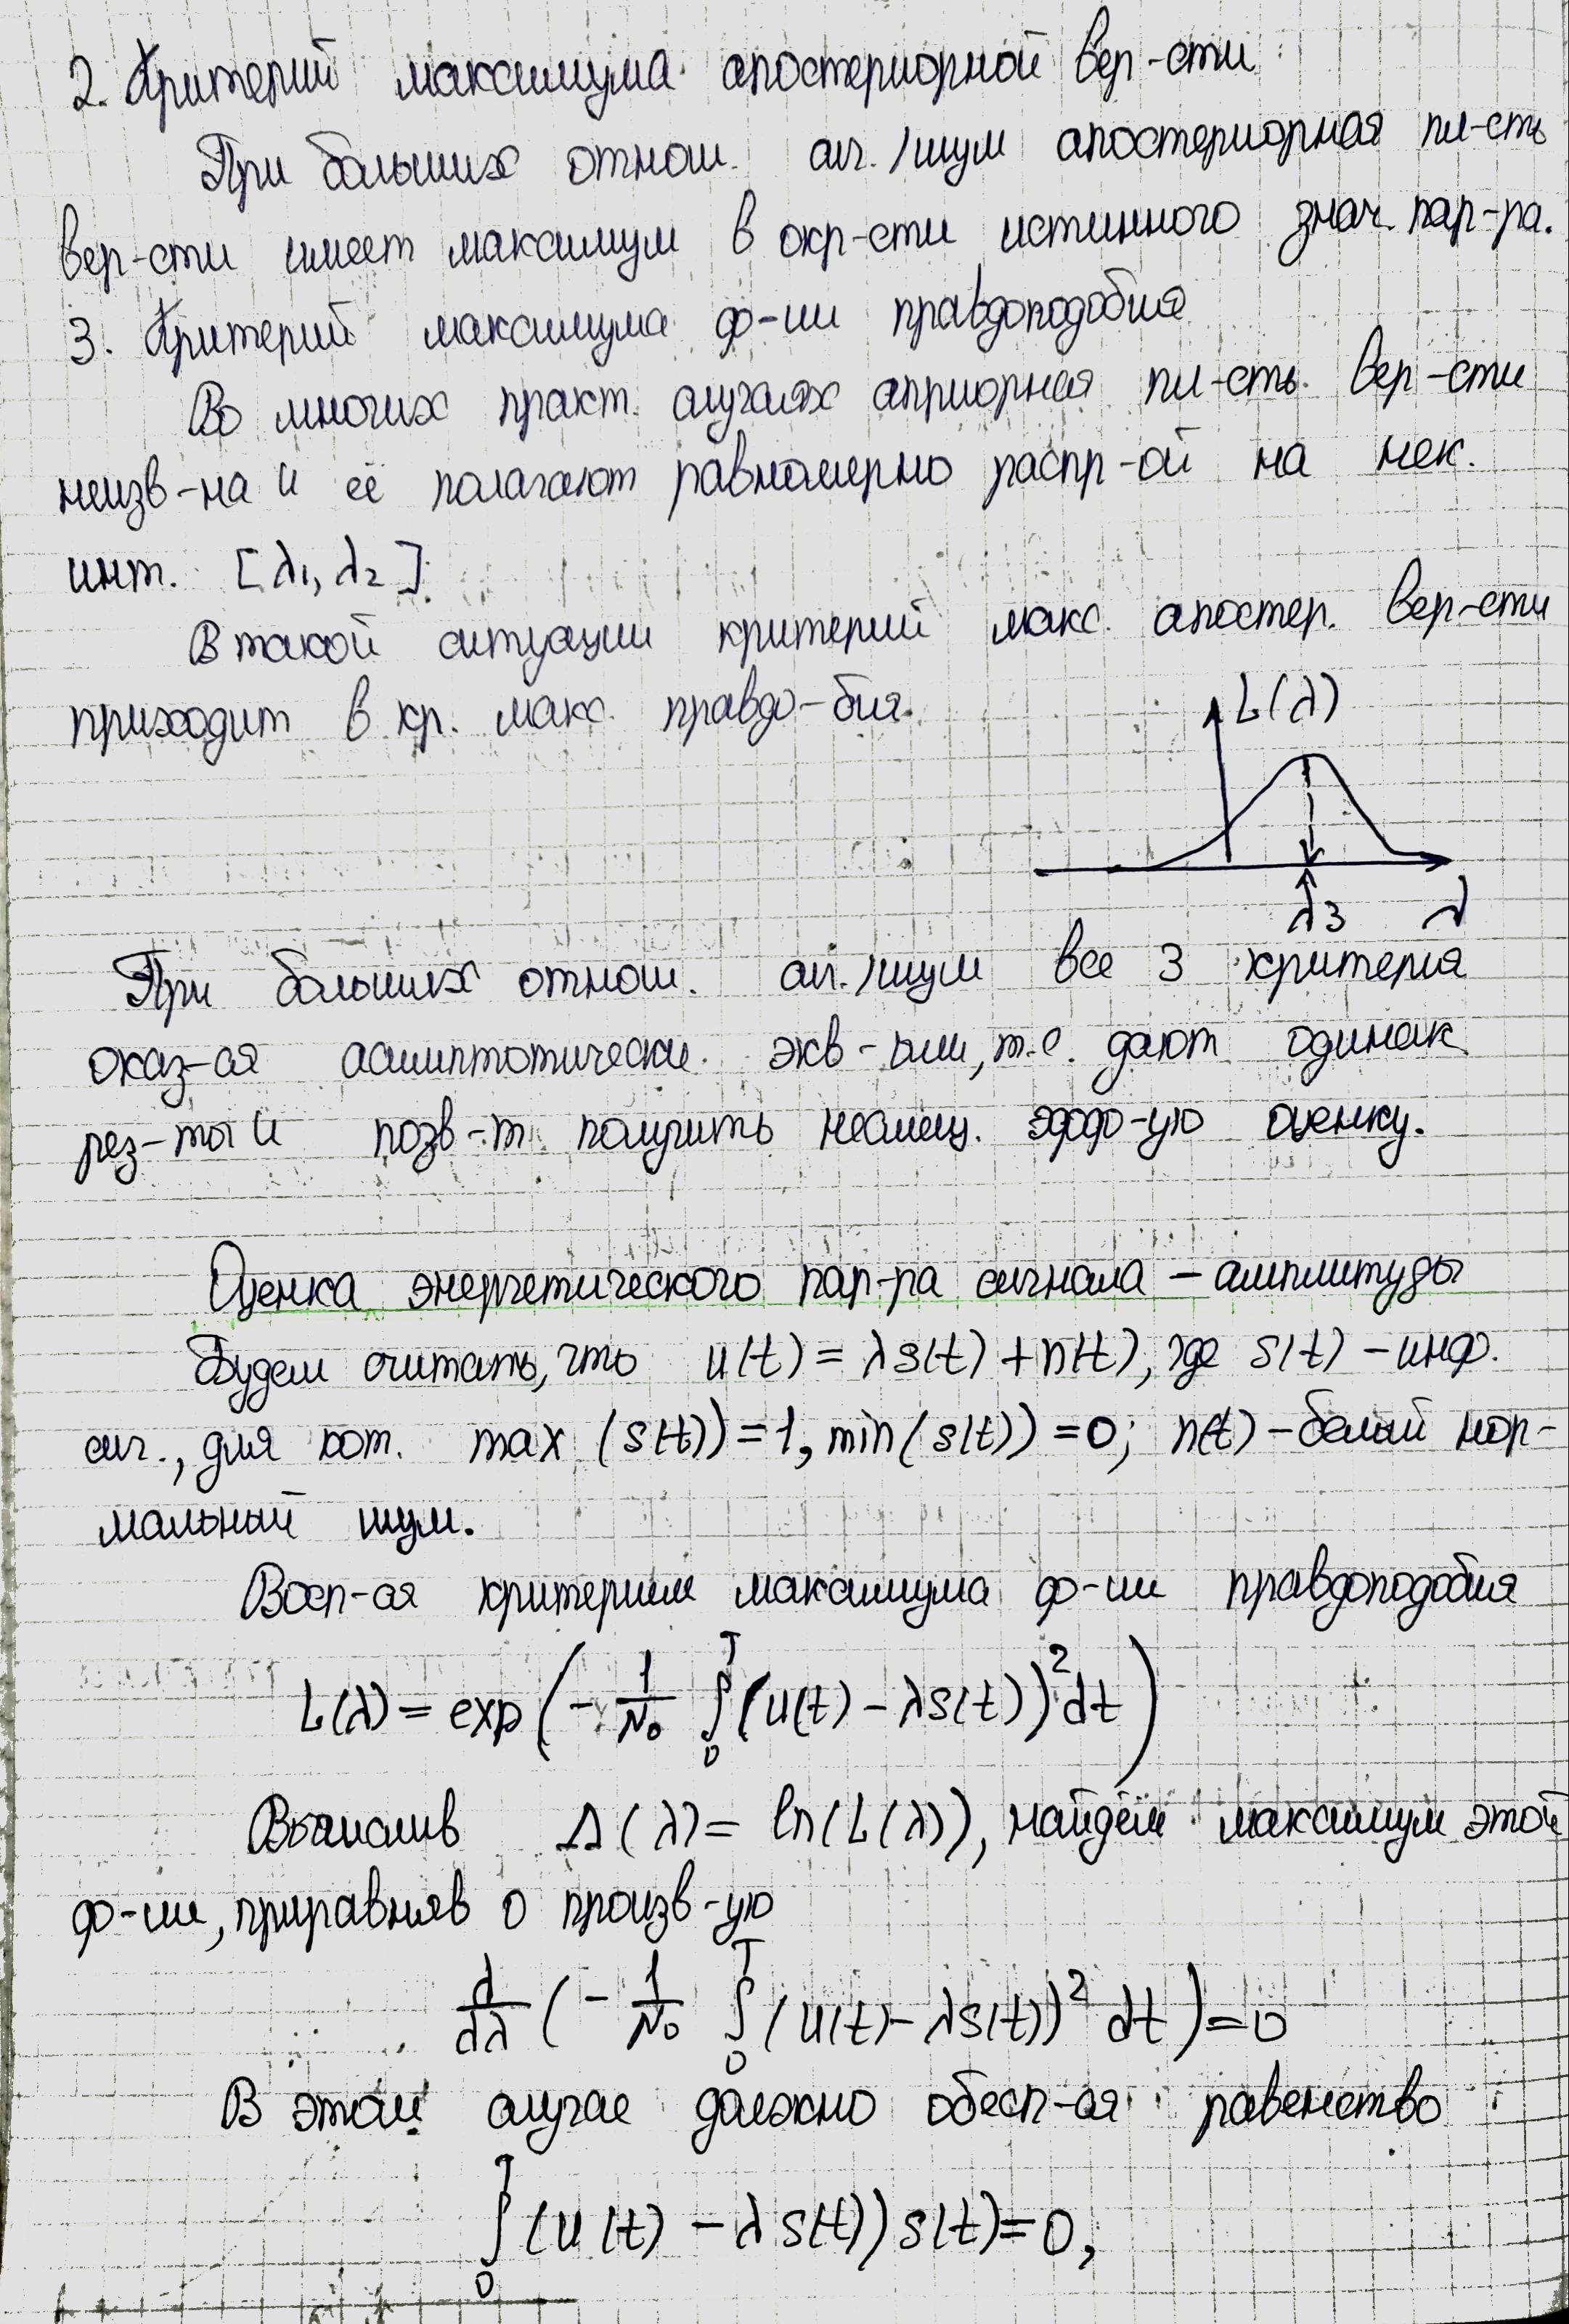 2. Критерий максимума апостериорной вер-сти
При больших отнош. сиг./шум апостериорная пл-сть
вер-сти имеет максимум в окр-сти истинного знач. пар-ра.
3. Критерий максимума ф-ии правдоподобия
Во многих практ. случаях априорная пл-сть вер-сти
неизв-на и её полагают равномерно распр-ой на нек.
инт. [λ₁, λ₂]
В такой ситуации критерий макс. апостер. вер-сти
приходит в кр. макс. правдо-бия.
L(λ)
λ3 λ
При больших отнош. сиг./шум все 3 критерия
оказ-ся асимптотически экв-ыми, т.е. дают одинак.
рез-ты и позв-т получить несмещ. эфф-ую оценку.
Оценка энергетического пар-ра сигнала – амплитуды
Будем считать, что u(t) = λs(t) + n(t), где s(t) – инф.
сиг., для кот. max (s(t)) = 1, min(s(t)) = 0; n(t) – белый нор-
мальный шум.
Восп-ся критерием максимума ф-ии правдоподобия
L(λ) = exp(- 1/N₀ ∫₀ᵀ (u(t) – λs(t))² dt)
Вычислив Λ(λ) = ln(L(λ)), найдём максимум этой
ф-ии, приравняв 0 произв-ую
d/dλ (- 1/N₀ ∫₀ᵀ (u(t) – λs(t))² dt) = 0
В этом случае должно обесп-ся равенство
∫₀ᵀ (u(t) – λs(t)) s(t) = 0,